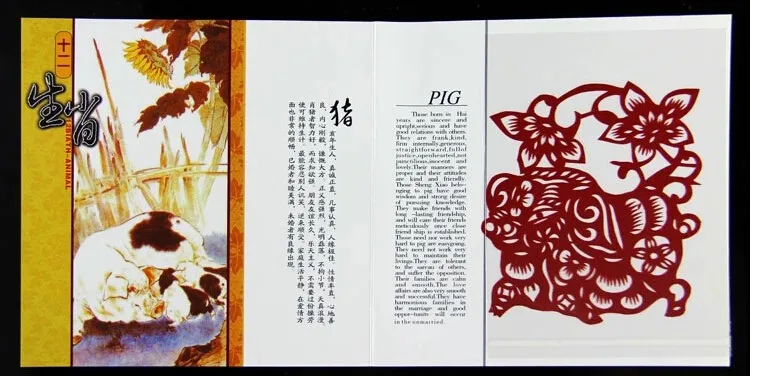 十二
生肖
BIRTH-ANIMAL
猪
亥年生人,真诚正直,凡事认真,人缘极佳,性情率直,心地善
良,内心刚毅,慷慨大方,正义感强烈,光明磊落,不拘小节,天真浪漫,
肖猪者智力好,而求知欲强,朋友友谊长久,乐天主义,不需要过份操劳
便可维持生计,最能容忍别人讥笑,逆来顺受,家庭生活平静,在爱情方
面也非常的顺畅,已婚者和睦美满,未婚者有良缘出现。
PIG
Those born in Hai
years are sincere and
upright,serious and have
good relations with others.
They are frank,kind,
firm internally,generous,
straightforward,full of
justice,openhearted,not
punctilious,innocent and
lovely.Their manners are
proper and their attitudes
are kind and friendly.
Those Sheng Xiao belo-
nging to pig have good
wisdom and strong desire
of persuing knowledge.
They make friends with
long -lasting friendship,
and will care their friends
meticulously once close
friend ship is established.
Those need nor work very
hard to pig are easygoing.
They need not work very
hard to maintain their
livings.They are tolerant
to the sarcasm of others,
and suffer the opposition.
Their families are calm
and smooth.The love
affairs are also very smooth
and successful.They have
harmonious families in
the marriage and good
oppor-tunity will occur
in the unmarried.